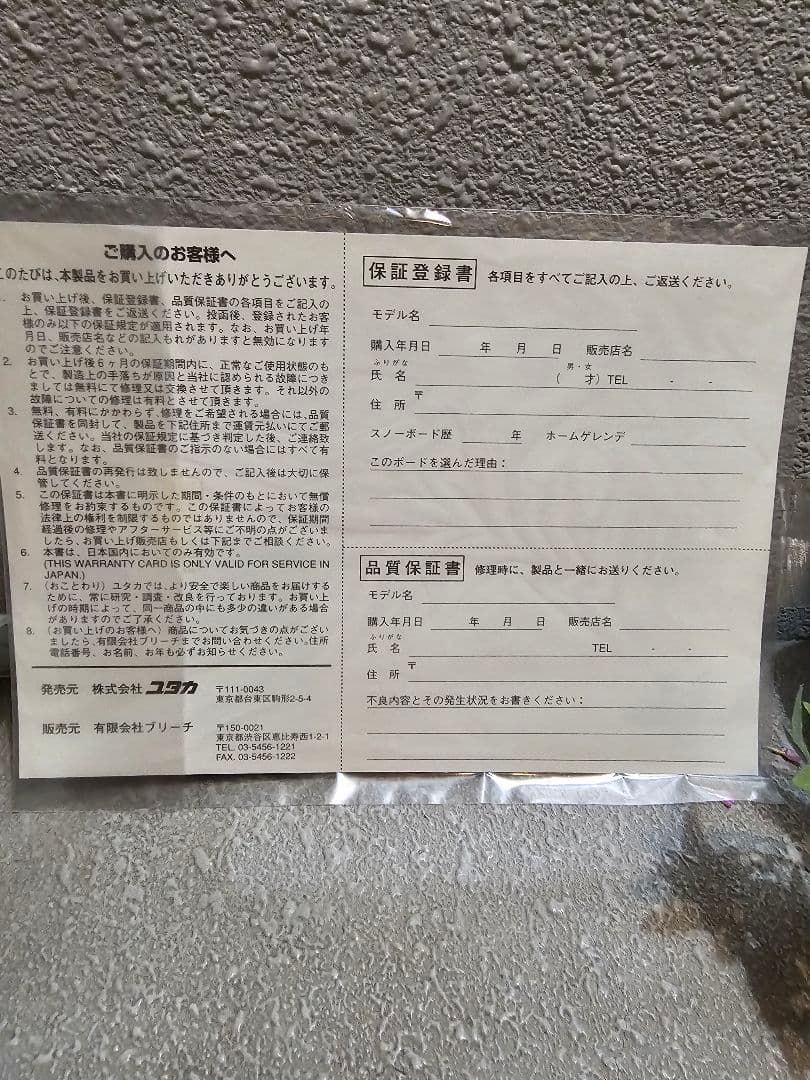 ご購入のお客様へ
このたびは、本製品をお買い上げいただきありがとうございます。
1. お買い上げ後、保証登録書、品質保証書の各項目をご記入の
上、保証登録書をご返送ください。投函後、登録されたお客
様のみ以下の保証規定が適用されます。なお、お買い上げ年
月日、販売店名などの記入もれがありますと無効になります
のでご注意ください。
2. お買い上げ後6ヶ月の保証期間内に、正常なご使用状態のも
とで、製造上の手落ちが原因と当社に認められる故障につき
ましては無料にて修理又は交換させて頂きます。それ以外の
故障についての修理は有料とさせて頂きます。
3. 無料、有料にかかわらず、修理をご希望される場合には、品質
保証書を同封して、製品を下記住所まで運賃元払いにてご郵
送ください。当社の保証規定に基づき判定した後、ご連絡致
します。なお、品質保証書のご指示のない場合にはすべて有
料となります。
4. 品質保証書の再発行は致しませんので、ご記入後は大切に保
管してください。
5. この保証書は本書に明示した期間・条件のもとにおいて無償
修理をお約束するものです。この保証書によってお客様の
法律上の権利を制限するものではありませんので、保証期間
経過後の修理やアフターサービス等にご不明の点がございま
したら、お買い上げ販売店もしくは下記までご相談ください。
6. 本書は、日本国内においてのみ有効です。
(THIS WARRANTY CARD IS ONLY VALID FOR SERVICE IN
JAPAN.)
7. (おことわり)ユタカでは、より安全で楽しい商品をお届けする
ために、常に研究・調査・改良を行っております。お買い上
げの時期によって、同一商品の中にも多少の違いがある場合
がありますのでご了承ください。
8. (お買い上げのお客様へ)商品についてお気づきの点がござい
ましたら、有限会社ブリーチまでお問い合わせください。住所
電話番号、お名前、お年も必ずお知らせください。
発売元 株式会社 ユタカ 〒111-0043
東京都台東区駒形2-5-4
販売元 有限会社ブリーチ 〒150-0021
東京都渋谷区恵比寿西1-2-1
TEL. 03-5456-1221
FAX. 03-5456-1222
保証登録書 各項目をすべてご記入の上、ご返送ください。
モデル名
購入年月日 年 月 日 販売店名
ふりがな 男・女
氏 名 ( 才) TEL - -
住 所 〒
スノーボード歴 年 ホームゲレンデ
このボードを選んだ理由：
品質保証書 修理時に、製品と一緒にお送りください。
モデル名
購入年月日 年 月 日 販売店名
ふりがな
氏 名 TEL - -
住 所 〒
不良内容とその発生状況をお書きください：